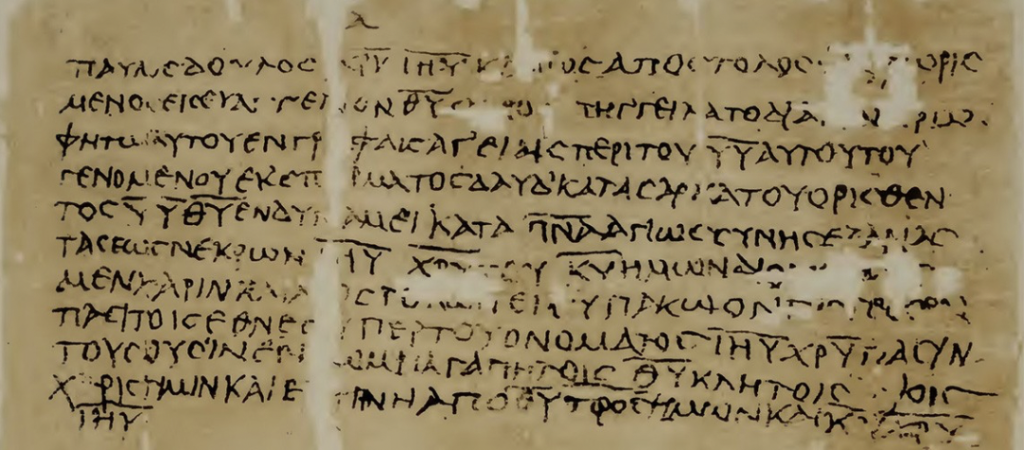 Α
ΠΑΥΛΟϹ ΔΟΥΛΟϹ ΧΡΥ ΙΗΥ ΚΛΗΤΟϹ ΑΠΟϹΤΟΛΟϹ
ΜΕΝΟϹ ΕΙϹ ΕΥΑΓΓΕΛΙΟΝ ΘΥ
ΦΗΤΩΝ ΑΥΤΟΥ ΕΝ ΓΡΑΦΑΙϹ ΑΓΕΙΑΙϹ ΠΕΡΙ ΤΟΥ ΥΥ ΑΥΤΟΥ ΤΟΥ
ΓΕΝΟΜΕΝΟΥ ΕΚ ϹΠΕΡΜΑΤΟϹ ΔΑΥΔ ΚΑΤΑ ϹΑΡΚΑ ΤΟΥ ΟΡΙϹΘΕΝ
ΤΟϹ ΥΥ ΘΥ ΕΝ ΔΥΝΑΜΕΙ ΚΑΤΑ ΠΝΑ ΑΓΙΩϹϹΥΝΗϹ ΕΞ ΑΝΑϹ
ΤΑϹΕΩϹ ΝΕΚΡΩΝ ΙΗΥ ΧΡϹΥ ΤΟΥ ΚΥ ΗΜΩΝ
ΜΕΝ ΧΑΡΙΝ ΚΑΙ ΥΠΑΚΩΗΝ
ΠΑϹΙ ΤΟΙϹ ΕΘΝΕϹΙ ΥΠΕΡ ΤΟΥ ΟΝΟΜΑΤΟϹ ΙΗΥ ΧΡΥ ΠΑϹΙΝ
ΤΟΥϹ ΟΥϹΙΝ ΕΝ ΡΩΜΗ ΑΓΑΠΗΤΟΙϹ ΘΥ ΚΛΗΤΟΙϹ
ΧΑΡΙϹ ΗΜΙΝ ΚΑΙ ΕΙΡΗΝΗ ΑΠΟ ΘΥ ΠΡΟϹ ΗΜΩΝ ΚΑΙ ΚΥ ΧΡΥ
ΙΗΥ